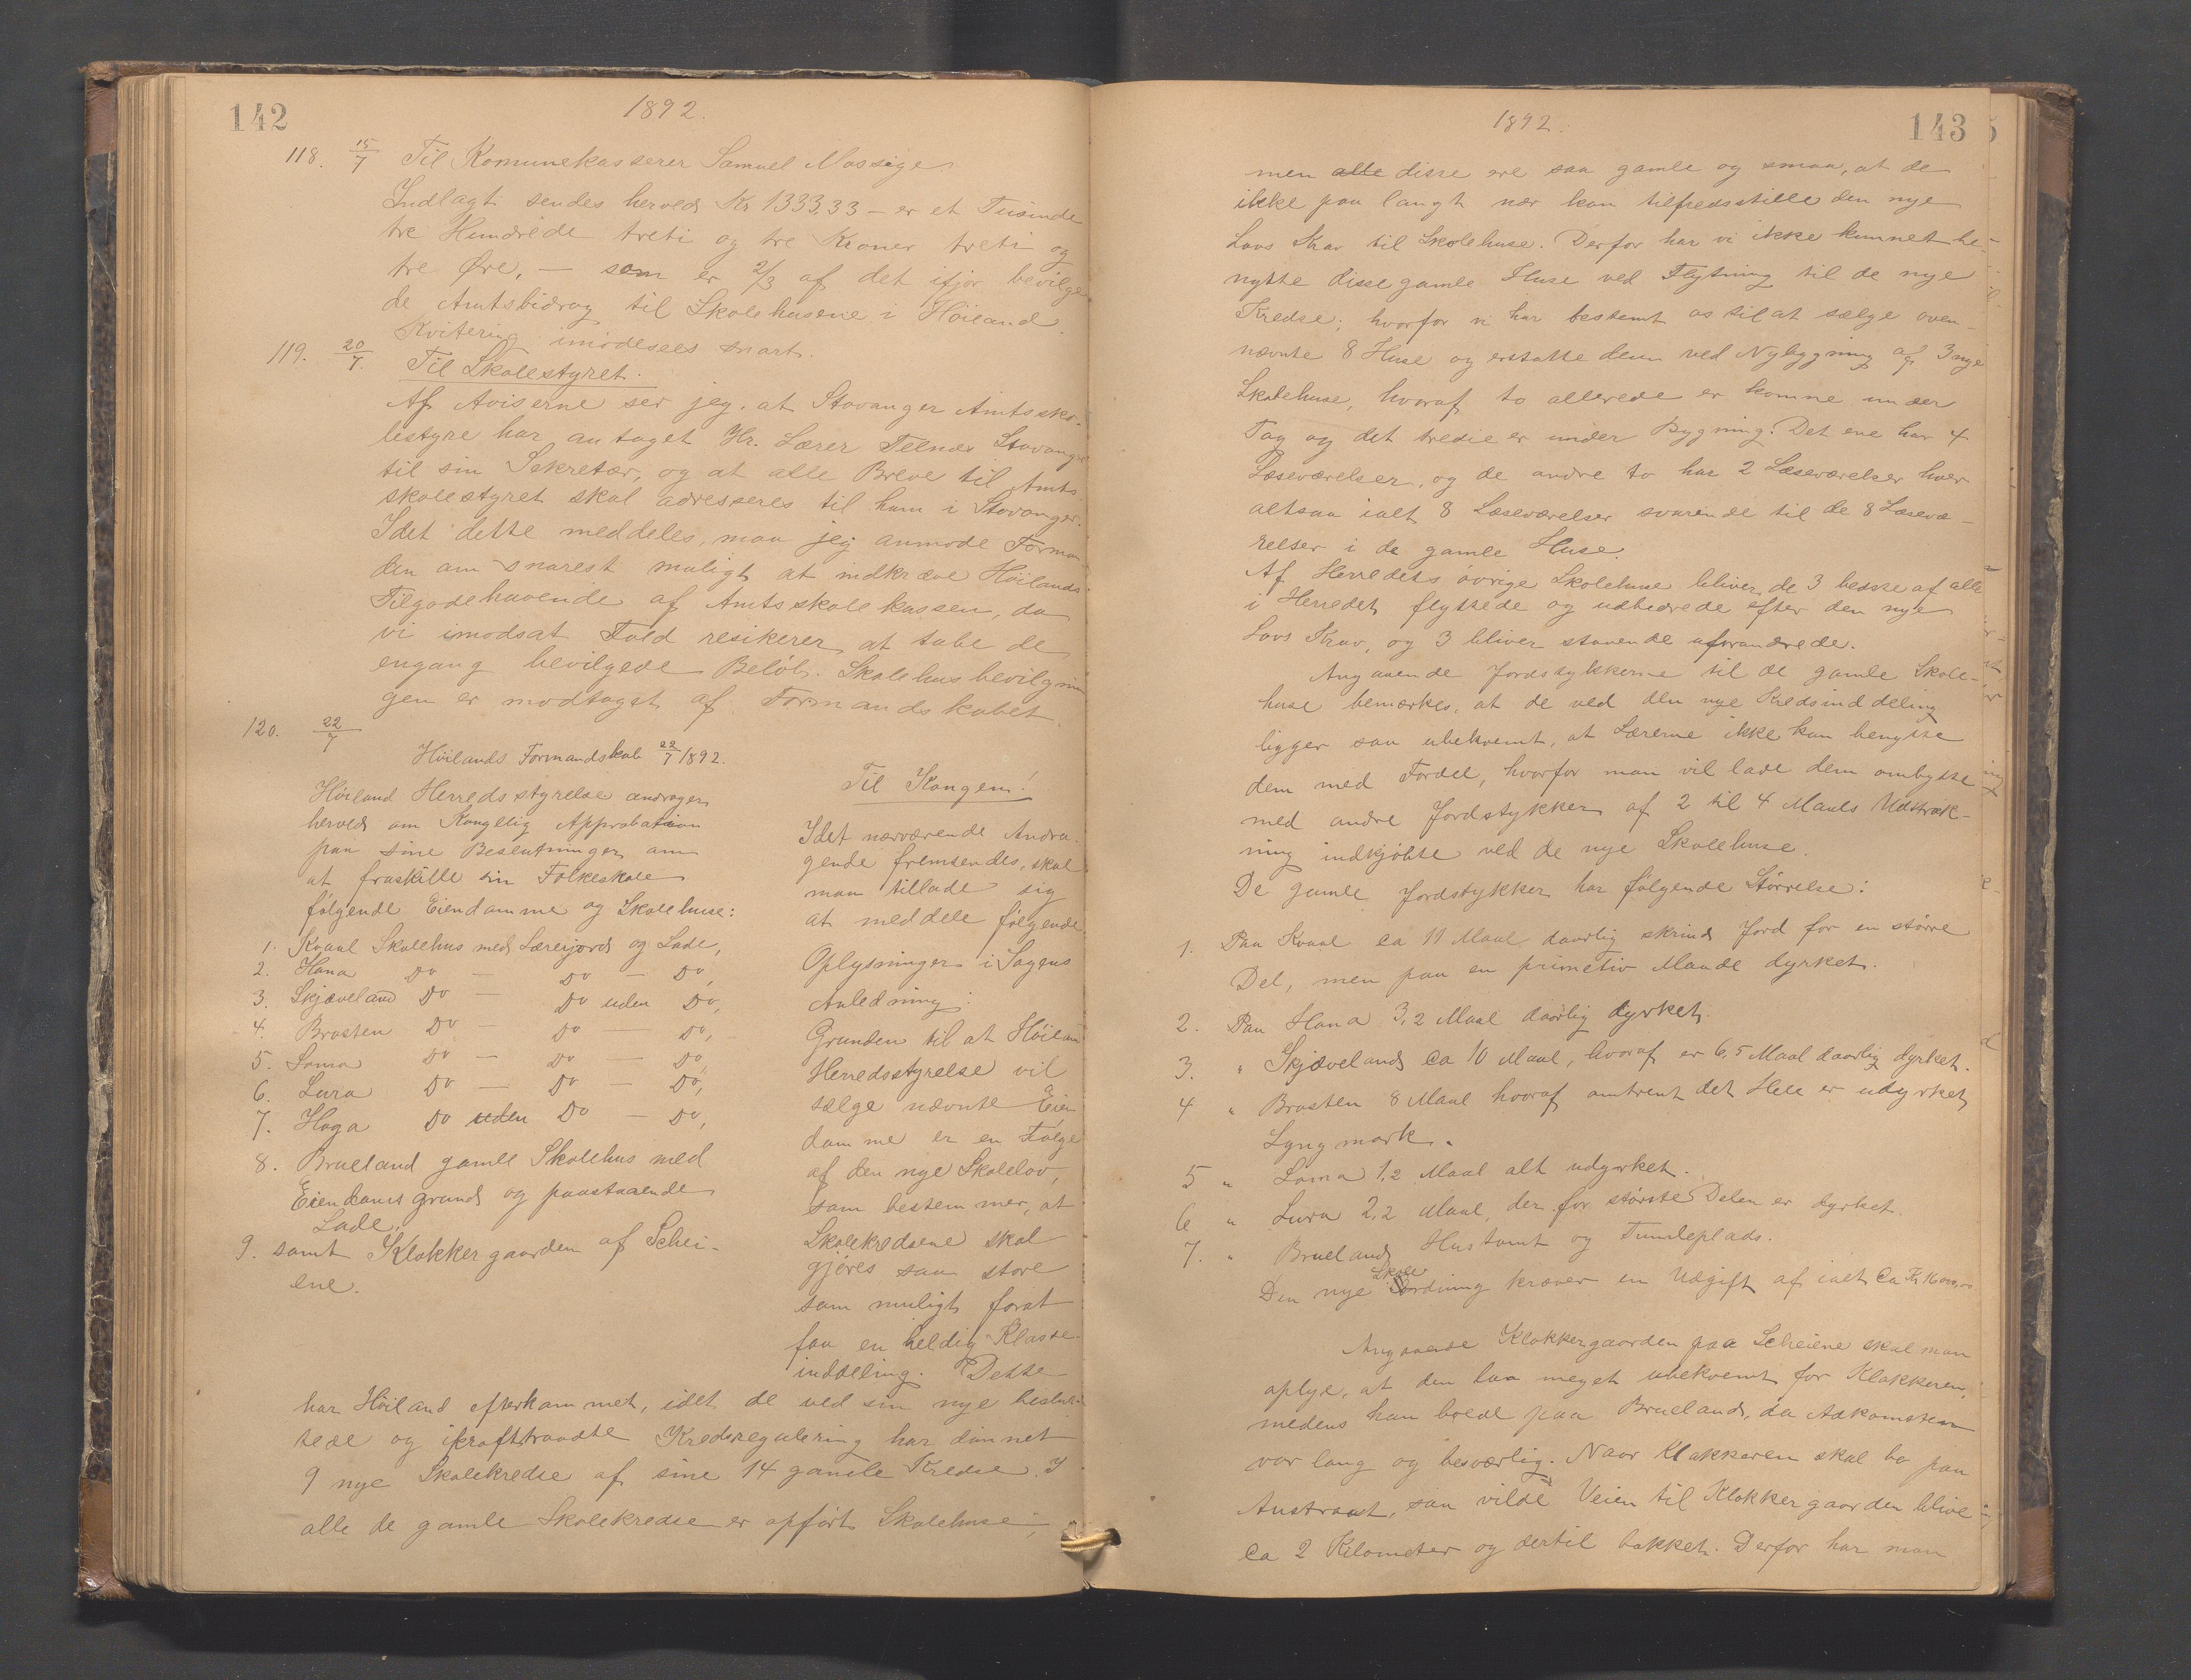 142
1892.
118. 15/7 Til Komunekasserer Samuel Mossige
Indlagt sendes herved Kr 1333,33 – er et Tusinde
tre Hundrede treti og tre Kroner treti og
tre Øre, — som er 2/3 af det ifjor bevilge
de Amtsbidrag til Skolehusene i Höiland.
Kvitering imödesees snart.
119. 20/7. Til Skolestyret.
Af Aviserne ser jeg, at Stavanger Amtssko-
lestyre har antaget Hr. Lærer Telnes Stavanger
til sin Sekretær, og at alle Breve til Amts
skolestyret skal adresseres til ham i Stavanger.
Idet dette meddeles, maa jeg anmode Forman
den om snarest muligt at indkræve Höilands
Tilgodehavende af Amtsskolekassen, da
vi imodsat Fald resikerer at tabe de
engang bevilgede Belöb. Skolehusbevilgnin
gen er modtaget af Formandskabet.
120. 22/7
Höilands Formandskab 22/7 1892.
Höiland Herredsstyrelse andrager
herved om Kongelig Approbation
paa sine Beslutninger om
at fraskille sin Folkeskole
følgende Eiendomme og Skolehuse:
1. Kvaal Skolehus med Lærerjord og Lade,
2. Hana Do — Do — Do,
3. Skjæveland Do — Do uden Do,
4. Brasten Do — Do — Do,
5. Soma Do — Do — Do,
6. Lura Do — Do — Do,
7. Hoga Do uden Do — Do,
8. Brueland gamle Skolehus med
Eiendoms grund og paastaaende
Lade.
9. samt Klokkergaarden af Schei-
ene.
Til Kongen!
Idet nærværende Andra
gende fremsendes, skal
man tillade sig
at meddele følgende
Oplysninger i Sagens
Anledning:
Grunden til at Höiland
Herredsstyrelse vil
sælge nævnte Eien
domme er en Følge
af den nye Skolelov,
som bestemmer, at
Skolekredsene skal
gjøres saa store
som muligt forat
faa en heldig Klasse
inddeling. Dette
har Höiland efterkommet, idet de ved sin nye beslut-
tede og ikrafttraadte Kredsregulering har dannet
9 nye Skolekredse af sine 14 gamle Kredse. I
alle de gamle Skolekredse er opført Skolehuse,
1892.
143
men alle disse ere saa gamle og smaa, at de
ikke paa langt nær kan tilfredsstille den nye
Lovs Krav til Skolehuse. Derfor har vi ikke kunnet be-
nytte disse gamle Huse ved Flytning til de nye
Kredse; hvorfor vi har bestemt os til at sælge oven-
nævnte 8 Huse og erstatte dem ved Nybygning af 3 nye
Skolehuse, hvoraf to allerede er komne under
Tag og det tredie er under Bygning. Det ene har 4
Læseværelser, og de andre to har 2 Læseværelser hver
altsaa ialt 8 Læseværelser svarende til de 8 Læsevæ-
relser i de gamle Huse.
Af Herredets övrige Skolehuse bliver de 3 bedste af alle
i Herredet flyttede og udbedrede efter den nye
Lovs Krav, og 3 bliver staaende uforandrede.
Angaaende Jordstykkerne til de gamle Skole-
huse bemærkes, at de ved den nye Kredsinddeling
ligger saa ubekvemt, at Lærerne ikke kan benytte
dem med Fordel, hvorfor man vil lade dem ombytte
med andre Jordstykker af 2 til 4 Maals Udstræk-
ning indkjöbte ved de nye Skolehuse.
De gamle Jordstykker har følgende Størrelse:
1. Paa Kvaal ca 11 Maal daarlig skrind Jord for en större
Del, men paa en primetiv Maade dyrket.
2. Paa Hana 3,2 Maal daarlig dyrket.
3. " Skjæveland ca 10 Maal, hvoraf er 6,5 Maal daarlig dyrket.
4 " Brasten 8 Maal hvoraf omtrent det Hele er udyrket
Lyngmark.
5 " Soma 1,2 Maal alt udyrket.
6 " Lura 2,2 Maal, der for störste Delen er dyrket.
7. " Brueland Hustomt og Tumleplads.
Den nye Skoleordning kræver en Udgift af ialt Ca Kr 16000,00
Angaaende Klokkergaarden paa Scheiene skal man
oplyse, at den laa meget ubekvemt for Klokkeren,
medens han boede paa Brueland, da Adkomsten
var lang og besværlig. Naar Klokkeren skal bo paa
Austraat, saa vilde Veien til Klokkergaarden blive
ca 2 Kilometer og dertil bakket. Derfor har man